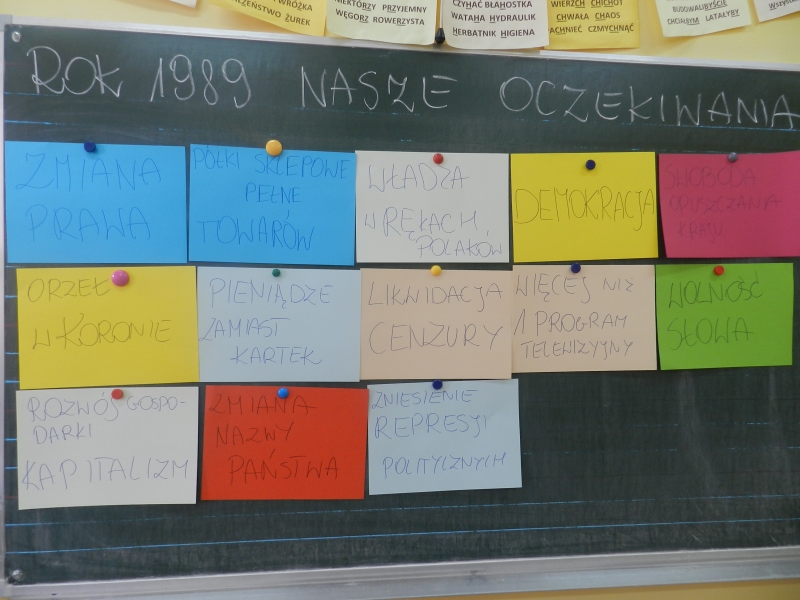 WRÓŻKA
ŻUREK
NIEKTÓRZY PRZYJEMNY
WĘGORZ ROWERZYSTA
CZYHAĆ BŁAHOSTKA
WATAHA HYDRAULIK
HERBATNIK HIGIENA
WIERZCH CHICHOT
CHWAŁA CHAOS
CZMYCHNĄĆ
BUDOWALIBYŚCIE
LATAŁYBY
ROK 1989 NASZE OCZEKIWANIA
ZMIANA
PRAWA
PÓŁKI SKLEPOWE
PEŁNE
TOWARÓW
WŁADZA
W RĘKACH
POLAKÓW
DEMOKRACJA
SWOBODA
OPUSZCZANIA
KRAJU
ORZEŁ
W KORONIE
PIENIĄDZE
ZAMIAST
KARTEK
LIKWIDACJA
CENZURY
WIĘCEJ NIŻ
1 PROGRAM
TELEWIZYJNY
WOLNOŚĆ
SŁOWA
ROZWÓJ GOSPO-
DARKI
KAPITALIZM
ZMIANA
NAZWY
PAŃSTWA
ZNIESIENIE
REPRESJI
POLITYCZNYCH